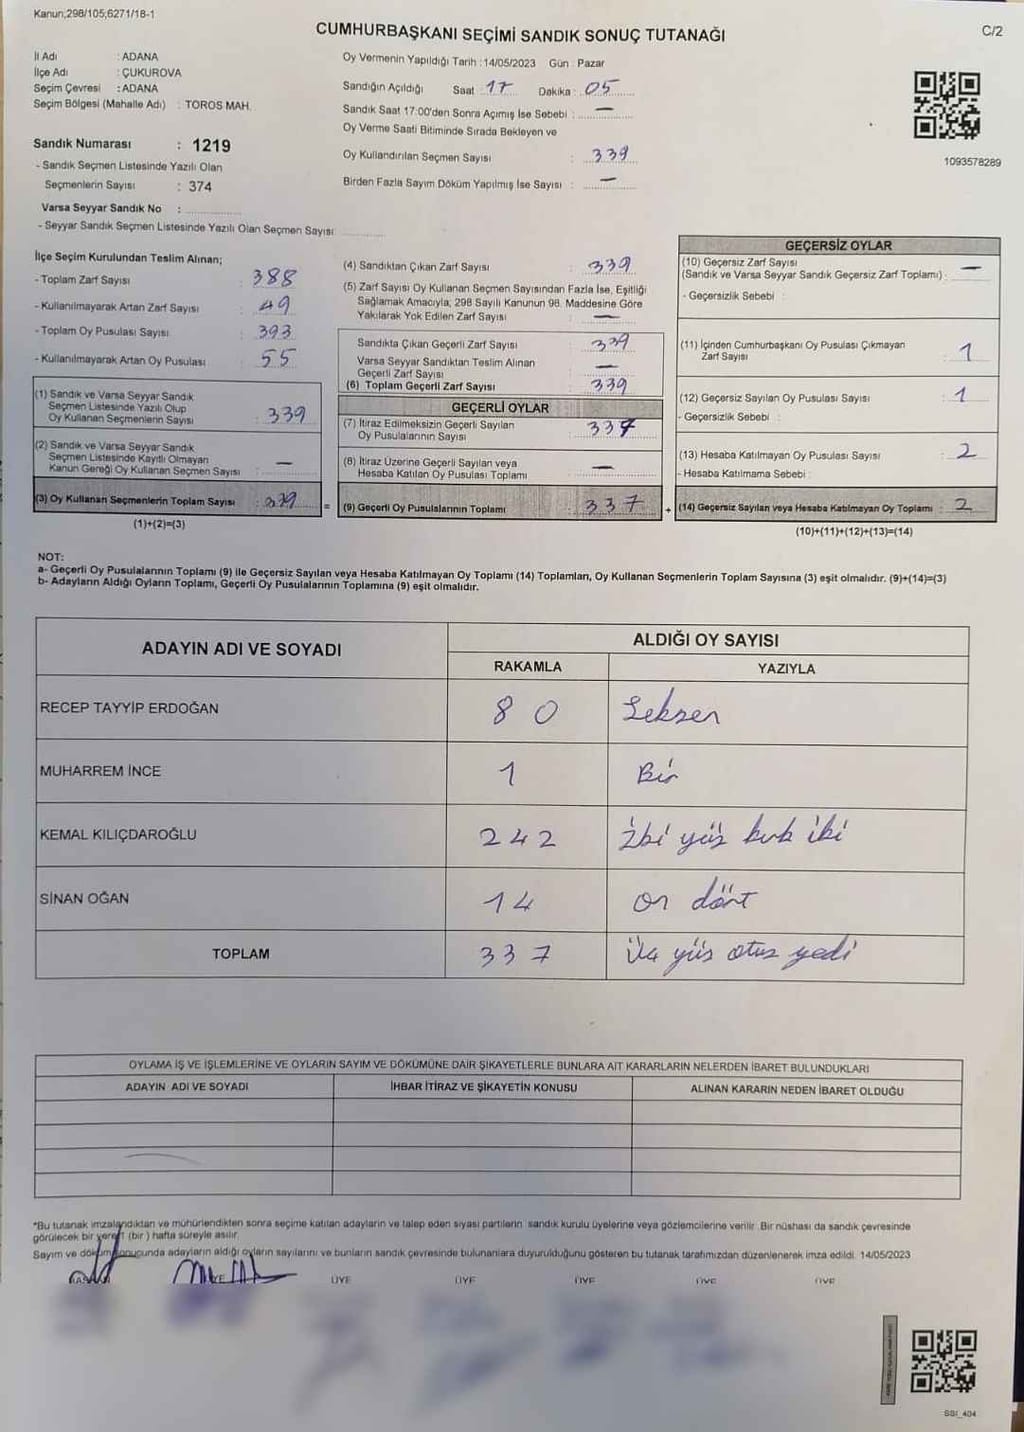 Kanun;298/105;6271/18-1
CUMHURBAŞKANI SEÇİMİ SANDIK SONUÇ TUTANAĞI
C/2
İl Adı : ADANA
İlçe Adı : ÇUKUROVA
Seçim Çevresi : ADANA
Seçim Bölgesi (Mahalle Adı) : TOROS MAH.
Sandık Numarası : 1219
- Sandık Seçmen Listesinde Yazılı Olan
Seçmenlerin Sayısı : 374
Varsa Seyyar Sandık No :
- Seyyar Sandık Seçmen Listesinde Yazılı Olan Seçmen Sayısı
Oy Vermenin Yapıldığı Tarih :14/05/2023 Gün : Pazar
Sandığın Açıldığı Saat : 17 Dakika : 05
Sandık Saat 17:00'den Sonra Açımış İse Sebebi : —
Oy Verme Saati Bitiminde Sırada Bekleyen ve
Oy Kullandırılan Seçmen Sayısı : 339
Birden Fazla Sayım Döküm Yapılmış İse Sayısı : —
1093578289
İlçe Seçim Kurulundan Teslim Alınan;
- Toplam Zarf Sayısı : 388
- Kullanılmayarak Artan Zarf Sayısı : 49
- Toplam Oy Pusulası Sayısı : 393
- Kullanılmayarak Artan Oy Pusulası : 55
(1) Sandık ve Varsa Seyyar Sandık
Seçmen Listesinde Yazılı Olup
Oy Kullanan Seçmenlerin Sayısı : 339
(2) Sandık ve Varsa Seyyar Sandık
Seçmen Listesinde Kayıtlı Olmayan
Kanun Gereği Oy Kullanan Seçmen Sayısı : —
(3) Oy Kullanan Seçmenlerin Toplam Sayısı : 339
(1)+(2)=(3)
(4) Sandıktan Çıkan Zarf Sayısı : 339
(5) Zarf Sayısı Oy Kullanan Seçmen Sayısından Fazla İse, Eşitliği
Sağlamak Amacıyla; 298 Sayılı Kanunun 98. Maddesine Göre
Yakılarak Yok Edilen Zarf Sayısı : —
Sandıkta Çıkan Geçerli Zarf Sayısı : 339
Varsa Seyyar Sandıktan Teslim Alınan
Geçerli Zarf Sayısı : —
(6) Toplam Geçerli Zarf Sayısı : 339
GEÇERLİ OYLAR
(7) İtiraz Edilmeksizin Geçerli Sayılan
Oy Pusulalarının Sayısı : 337
(8) İtiraz Üzerine Geçerli Sayılan veya
Hesaba Katılan Oy Pusulası Toplamı : —
= (9) Geçerli Oy Pusulalarının Toplamı : 337
GEÇERSİZ OYLAR
(10) Geçersiz Zarf Sayısı
(Sandık ve Varsa Seyyar Sandık Geçersiz Zarf Toplamı) : —
- Geçersizlik Sebebi :
(11) İçinden Cumhurbaşkanı Oy Pusulası Çıkmayan
Zarf Sayısı : 1
(12) Geçersiz Sayılan Oy Pusulası Sayısı : 1
- Geçersizlik Sebebi :
(13) Hesaba Katılmayan Oy Pusulası Sayısı : 2
- Hesaba Katılmama Sebebi :
+ (14) Geçersiz Sayılan veya Hesaba Katılmayan Oy Toplamı : 2
(10)+(11)+(12)+(13)=(14)
NOT:
a- Geçerli Oy Pusulalarının Toplamı (9) ile Geçersiz Sayılan veya Hesaba Katılmayan Oy Toplamı (14) Toplamları, Oy Kullanan Seçmenlerin Toplam Sayısına (3) eşit olmalıdır. (9)+(14)=(3)
b- Adayların Aldığı Oyların Toplamı, Geçerli Oy Pusulalarının Toplamına (9) eşit olmalıdır.
ADAYIN ADI VE SOYADI
ALDIĞI OY SAYISI
RAKAMLA YAZIYLA
RECEP TAYYİP ERDOĞAN 80 Seksen
MUHARREM İNCE 1 Bir
KEMAL KILIÇDAROĞLU 242 İki yüz kırk iki
SİNAN OĞAN 14 on dört
TOPLAM 337 Üç yüz otuz yedi
OYLAMA İŞ VE İŞLEMLERİNE VE OYLARIN SAYIM VE DÖKÜMÜNE DAİR ŞİKAYETLERLE BUNLARA AİT KARARLARIN NELERDEN İBARET BULUNDUKLARI
ADAYIN ADI VE SOYADI İHBAR İTİRAZ VE ŞİKAYETİN KONUSU ALINAN KARARIN NEDEN İBARET OLDUĞU
*Bu tutanak imzalandıktan ve mühürlendikten sonra seçime katılan adayların ve talep eden siyasi partilerin sandık kurulu üyelerine veya gözlemcilerine verilir. Bir nüshası da sandık çevresinde
görülecek bir yere 1 (bir) hafta süreyle asılır.
Sayım ve döküm sonucunda adayların aldığı oyların sayılarını ve bunların sandık çevresinde bulunanlara duyurulduğunu gösteren bu tutanak tarafımızdan düzenlenerek imza edildi. 14/05/2023
BAŞKAN ÜYE ÜYE ÜYE ÜYE ÜYE ÜYE
SSI_404